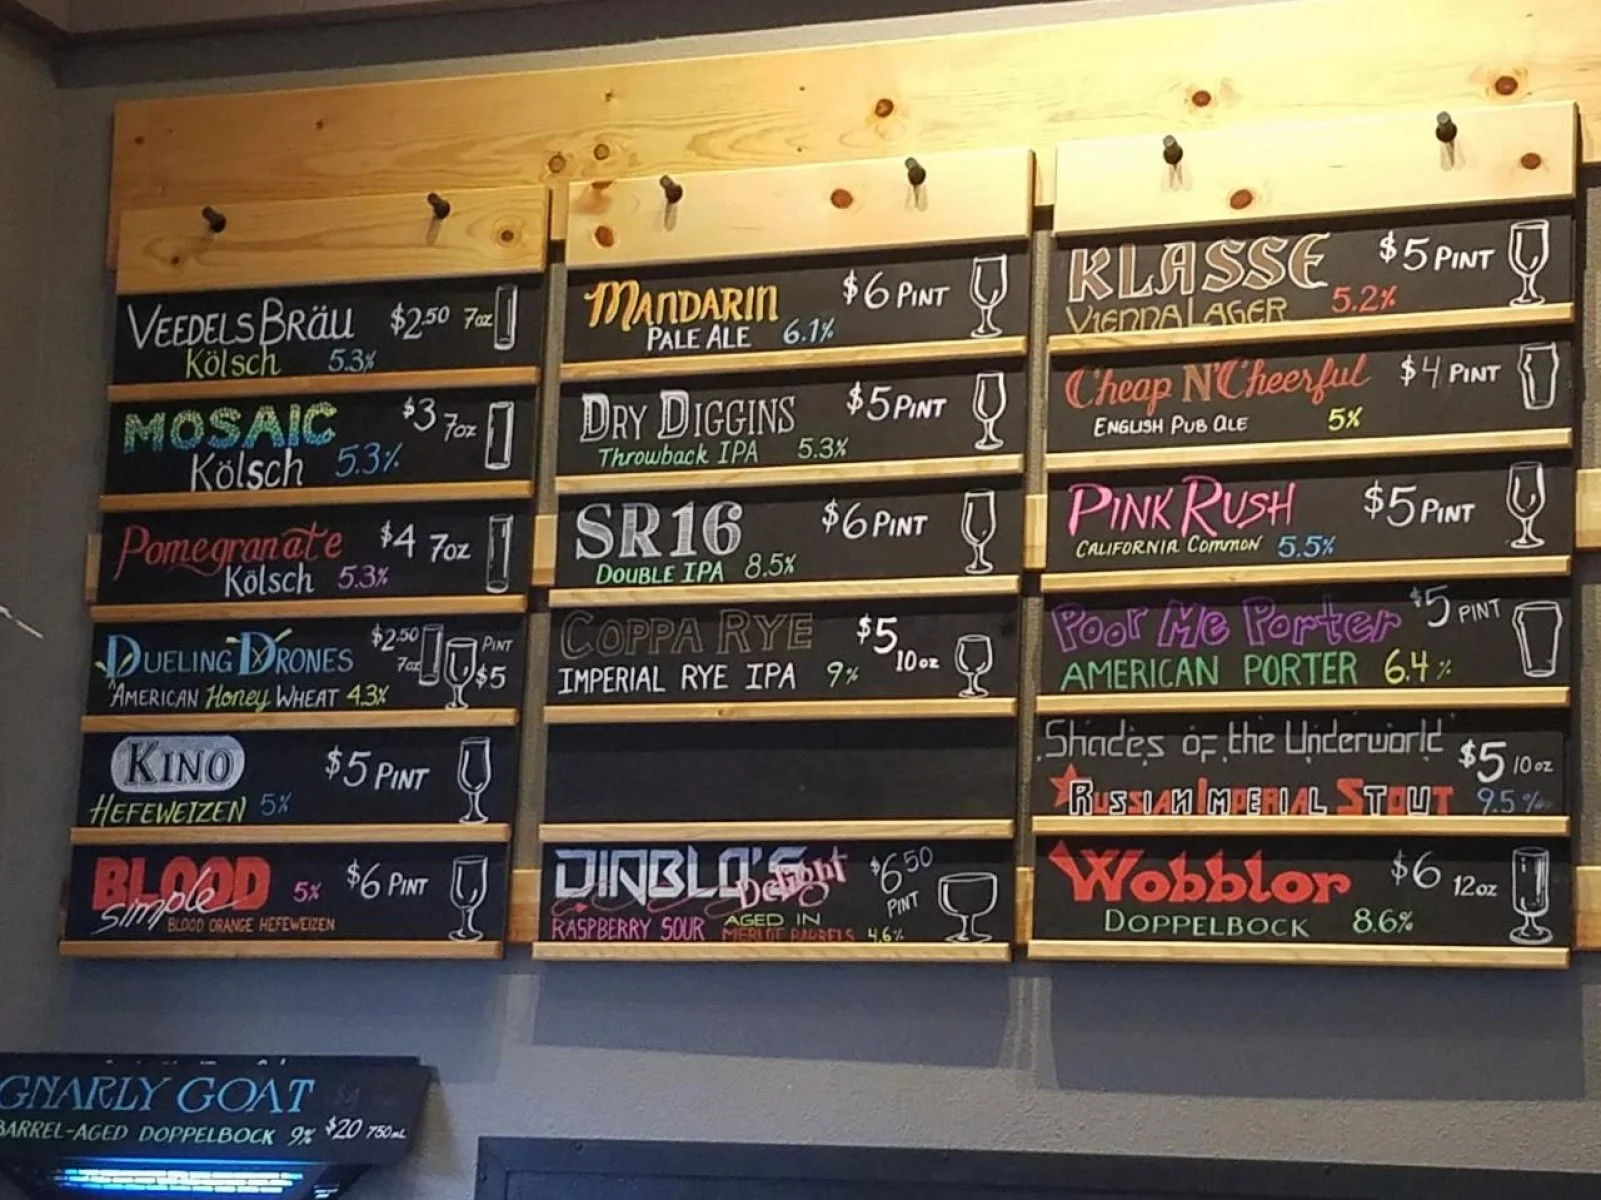 VEEDELSBRÄU $2.50 7oz
Kölsch 5.3%
MOSAIC $3 7oz
Kölsch 5.3%
Pomegranate $4 7oz
Kölsch 5.3%
DUELING DRONES $2.50 7oz PINT $5
AMERICAN Honey WHEAT 4.3%
KINO $5 PINT
HEFEWEIZEN 5%
BLOOD 5% $6 PINT
simple
BLOOD ORANGE HEFEWEIZEN
MANDARIN $6 PINT
PALE ALE 6.1%
DRY DIGGINS $5 PINT
Throwback IPA 5.3%
SR16 $6 PINT
DOUBLE IPA 8.5%
COPPA RYE $5 10oz
IMPERIAL RYE IPA 9%
DIABLO'S Delight $6.50 PINT
RASPBERRY SOUR AGED IN
MERLOT BARRELS 4.6%
KLASSE $5 PINT
VIENNA LAGER 5.2%
Cheap N' Cheerful $4 PINT
ENGLISH PUB ALE 5%
PINK RUSH $5 PINT
CALIFORNIA COMMON 5.5%
Poor Me Porter $5 PINT
AMERICAN PORTER 6.4%
Shades of the Underworld $5 10oz
RUSSIAN IMPERIAL STOUT 9.5%
Wobblor $6 12oz
DOPPELBOCK 8.6%
GNARLY GOAT
BARREL-AGED DOPPELBOCK 9% $20 750mL